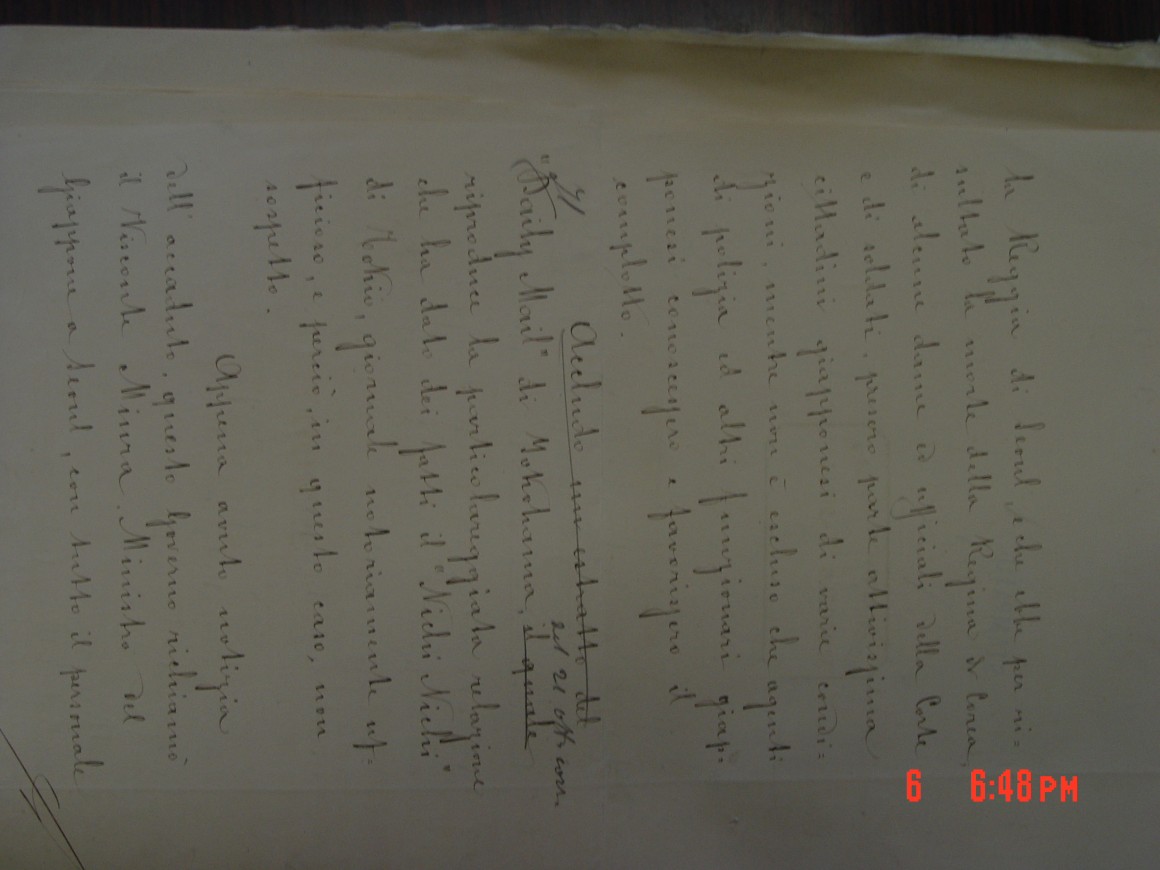 la Reggia di Seoul, e che ebbe per ri=
sultato la morte della Regina di Corea,
di alcune dame ed ufficiali della Corte
e di soldati, presero parte attivissima
cittadini giapponesi di varie condi=
zioni, mentre non è escluso che agenti
di polizia ed altri funzionari giap=
ponesi conoscessero e favorissero il
complotto.
Accludo un estratto del
"Daily Mail" di Yokohama, il quale
del 21 ott. corr.
riproduce la particolareggiata relazione
che ha dato dei fatti il "Nichi Nichi"
di Tokio, giornale notoriamente uf-
ficioso, e perciò, in questo caso, non
sospetto.
Appena avuto notizia
dell'accaduto, questo Governo richiamò
il Visconte Miura, Ministro del
Giappone a Seoul, con tutto il personale
6 6:48PM